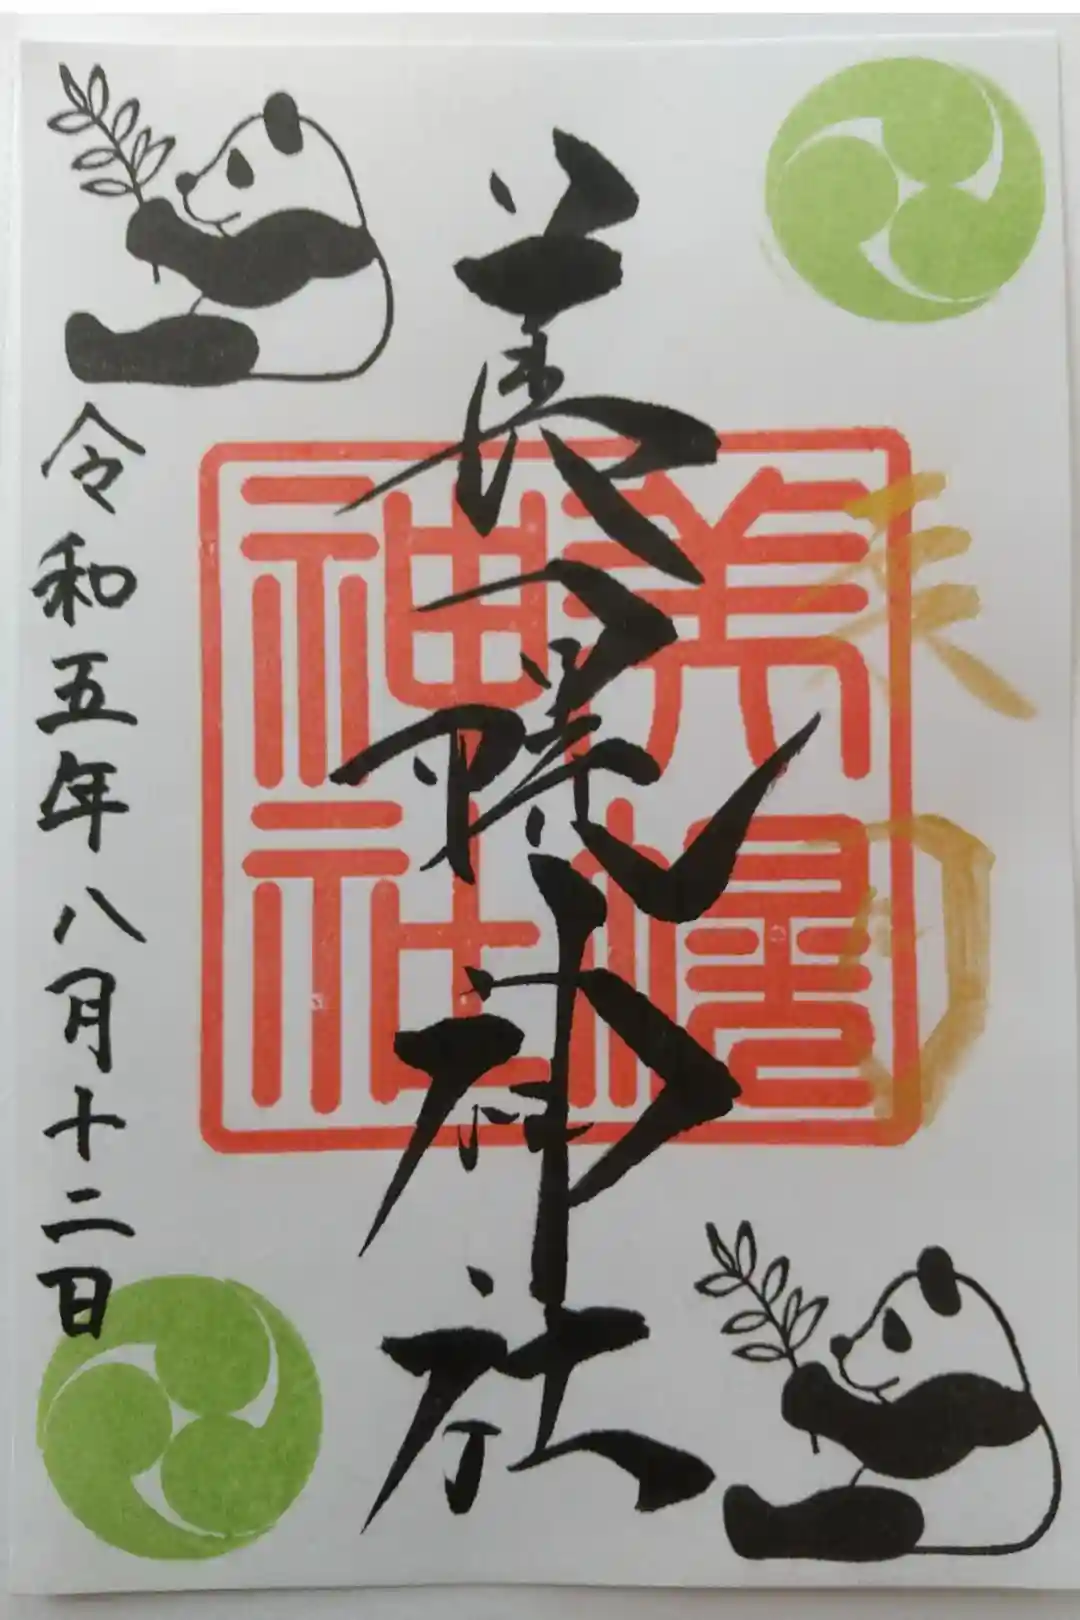 美幌神社
美幌
神社
令和五年八月十二日